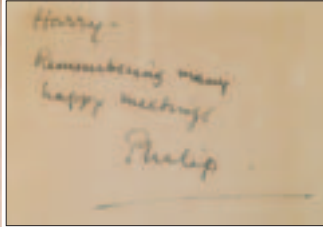 Harry -
Remembering many
happy meetings
Philip